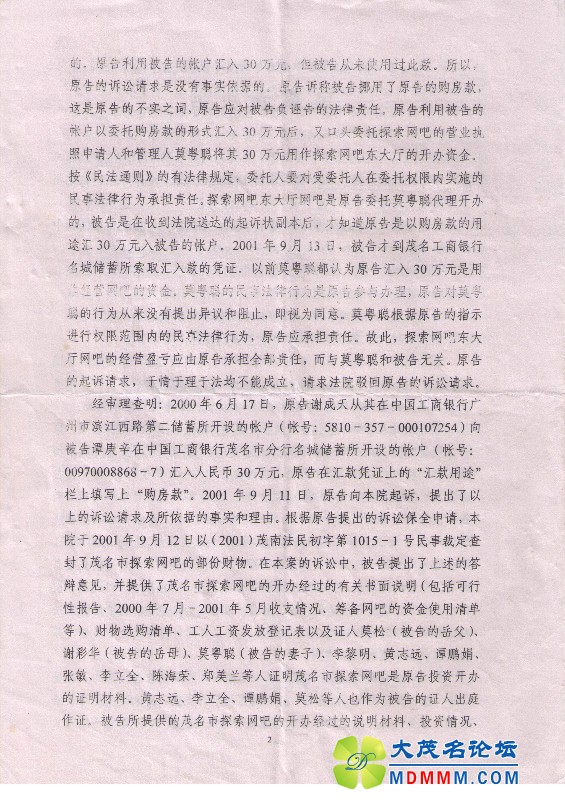 的。原告利用被告的帐户汇入 30 万元，但被告从未使用过此款。所以，
原告的诉讼请求是没有事实依据的。原告诉称被告挪用了原告的购房款，
这是原告的不实之词，原告应对被告负诬告的法律责任。原告利用被告的
帐户以委托购房款的形式汇入 30 万元后，又口头委托探索网吧的营业执
照申请人和管理人莫粤聪将其 30 万元用作探索网吧东大厅的开办资金。
按《民法通则》的有法律规定，委托人要对受委托人在委托权限内实施的
民事法律行为承担责任。探索网吧东大厅网吧是原告委托莫粤聪代理开办
的，被告是在收到法院送达的起诉状副本后，才知道原告是以购房款的用
途汇 30 万元入被告的帐户。2001 年 9 月 13 日，被告才到茂名工商银行
名城储蓄所索取汇入款的凭证。以前莫粤聪都认为原告汇入 30 万元是用
作经营网吧的资金。莫粤聪的民事法律行为是原告参与办理，原告对莫粤
聪的行为从来没有提出异议和阻止，即视为同意。莫粤聪根据原告的指示
进行权限范围内的民事法律行为，原告应承担责任。故此，探索网吧东大
厅网吧的经营盈亏应由原告承担全部责任，而与莫粤聪和被告无关。原告
的起诉请求，于情于理于法均不能成立，请求法院驳回原告的诉讼请求。
经审理查明：2000 年 6 月 17 日，原告谢成天从其在中国工商银行广
州市滨江西路第二储蓄所开设的帐户（帐号：5810－357－000107254）向
被告谭庚辛在中国工商银行茂名市分行名城储蓄所开设的帐户（帐号：
00970008868－7）汇入人民币 30 万元，原告在汇款凭证上的“汇款用途”
栏上填写上“购房款”。2001 年 9 月 11 日，原告向本院起诉，提出了以
上的诉讼请求及所依据的事实和理由。根据原告提出的诉讼保全申请，本
院于 2001 年 9 月 12 日以（2001）茂南法民初字第 1015－1 号民事裁定查
封了茂名市探索网吧的部份财物。在本案的诉讼中，被告提出了上述的答
辩意见，并提供了茂名市探索网吧的开办经过的有关书面说明（包括可行
性报告、2000 年 7 月－2001 年 5 月收支情况、筹备网吧的资金使用清单
等）、财物选购清单、工人工资发放登记表以及证人莫松（被告的岳父）、
谢彩华（被告的岳母）、莫粤聪（被告的妻子）、李黎明、黄志远、谭鹏娟、
张敏、李立全、陈海荣、郑美兰等人证明茂名市探索网吧是原告投资开办
的证明材料。黄志远、李立全、谭鹏娟、莫松等人也作为被告的证人出庭
作证。被告所提供的茂名市探索网吧的开办经过的说明材料、投资情况、
2
大茂名论坛
MDMMM.COM